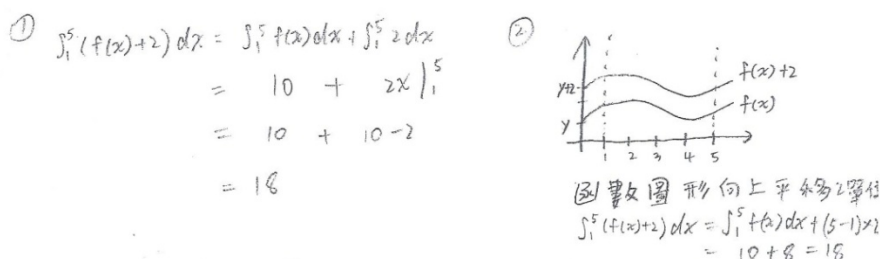 ①
∫₁⁵(f(x)+2)dx = ∫₁⁵f(x)dx+∫₁⁵2dx
= 10 + 2x|₁⁵
= 10 + 10-2
= 18
②
f(x)+2
y+2
f(x)
y
1 2 3 4 5
函數圖形向上平移2單位
∫₁⁵(f(x)+2)dx = ∫₁⁵f(x)dx+(5-1)×2
= 10+8=18